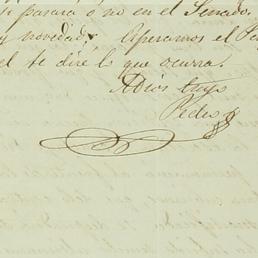 si pasará o nó en el Senado.
y novedad, Esperamos el Pa
el te diré lo que ocurra.
Adios tuyo
Pedro